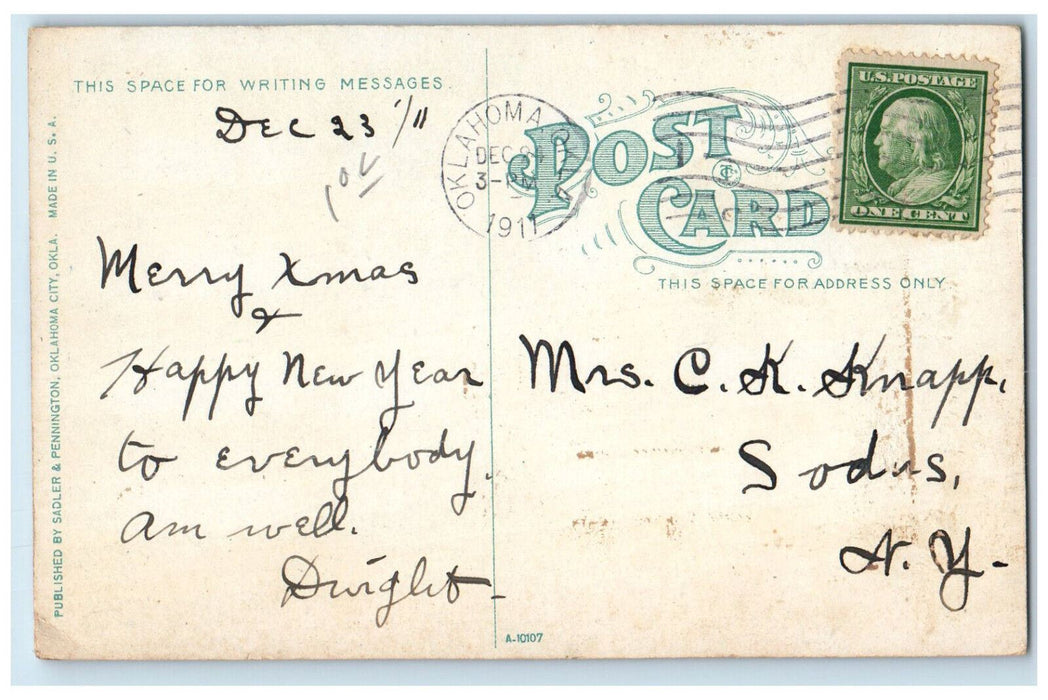 THIS SPACE FOR WRITING MESSAGES.
Dec 23 '/11
Merry Xmas
&
Happy New Year
to everybody.
am well.
Dwight.
PUBLISHED BY SADLER & PENNINGTON, OKLAHOMA CITY, OKLA. MADE IN U.S.A.
OKLAHOMA
DEC
3-PM
1911
POST
CARD
THIS SPACE FOR ADDRESS ONLY
U.S. POSTAGE
ONE CENT
Mrs. C. K. Knapp,
Sodus,
N. Y-
A-10107